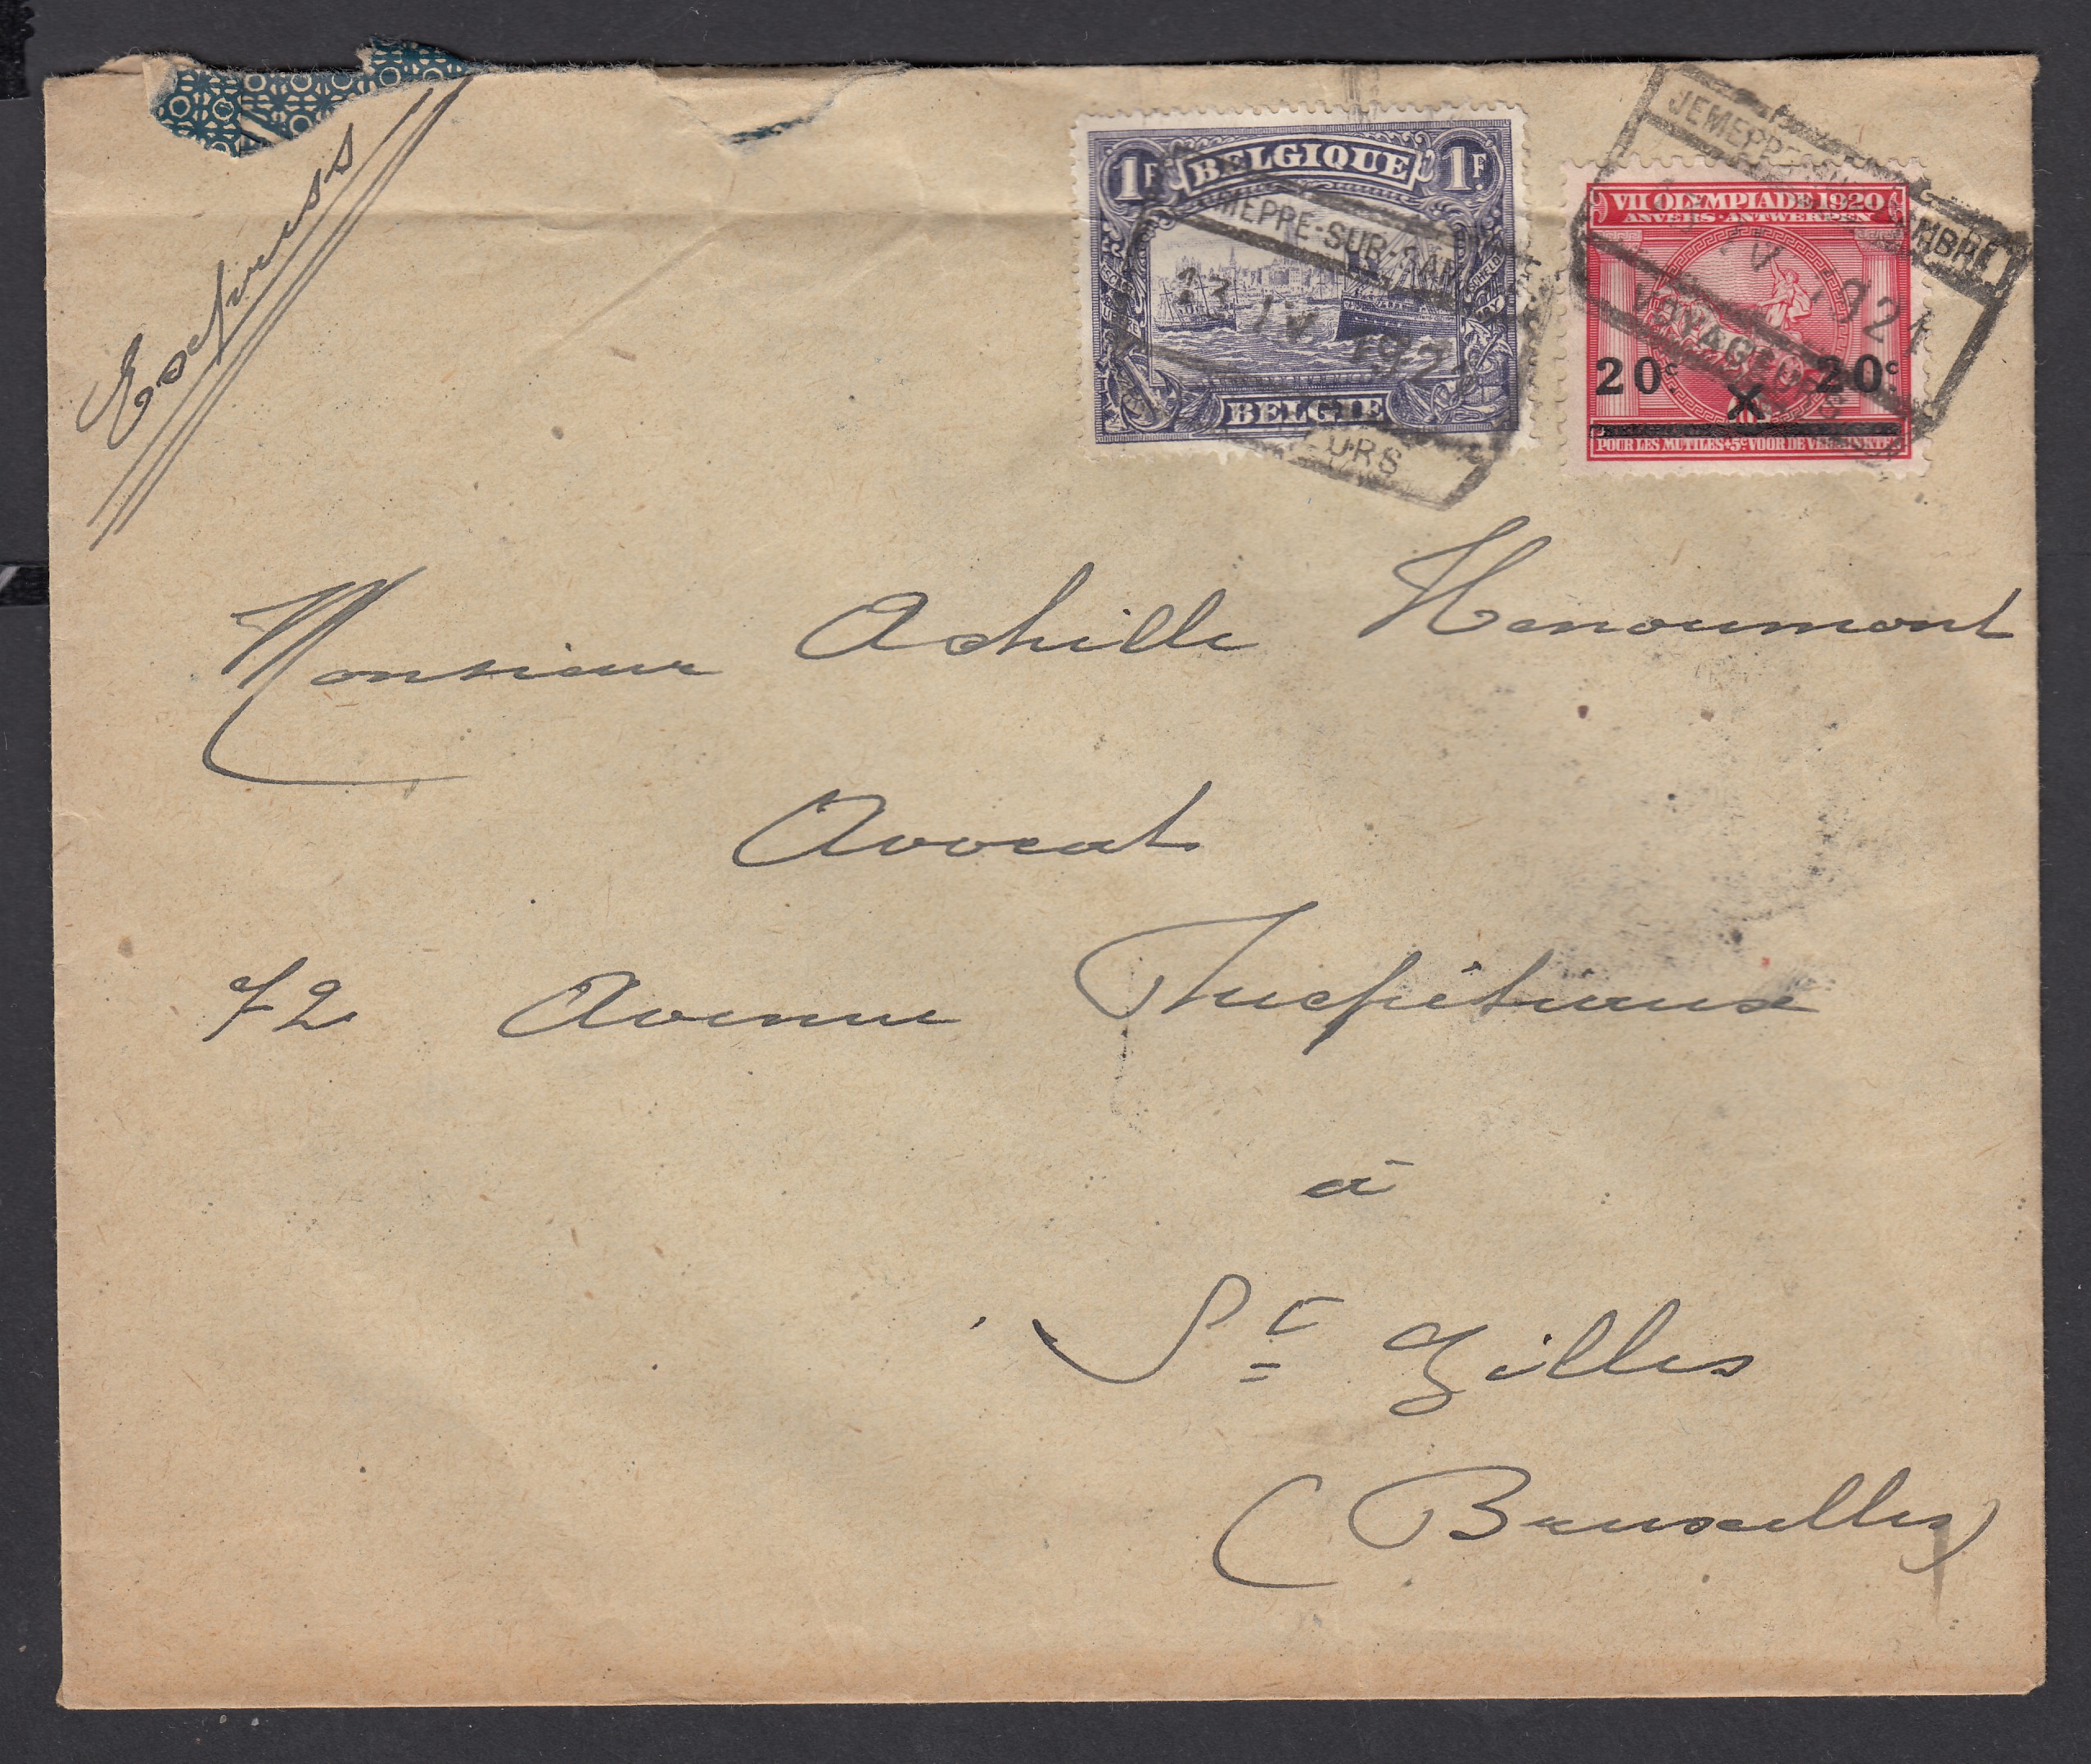 Express
1F BELGIQUE 1F.
ESCAUT SCHELDE
BELGIË
JEMEPPE-SUR-SAMBRE
13 IV 192
URS
VII OLYMPIADE 1920
ANVERS·ANTWERPEN
20c 20c
POUR LES MUTILÉS+5c VOOR DE VERMINKTEN
JEMEPPE-SUR-SAMBRE
IV 1921
VOYAGEURS
Monsieur Achille Henoumont
Avocat
72 Avenue Ducpétiaux
à
St Gilles
(Bruxelles)